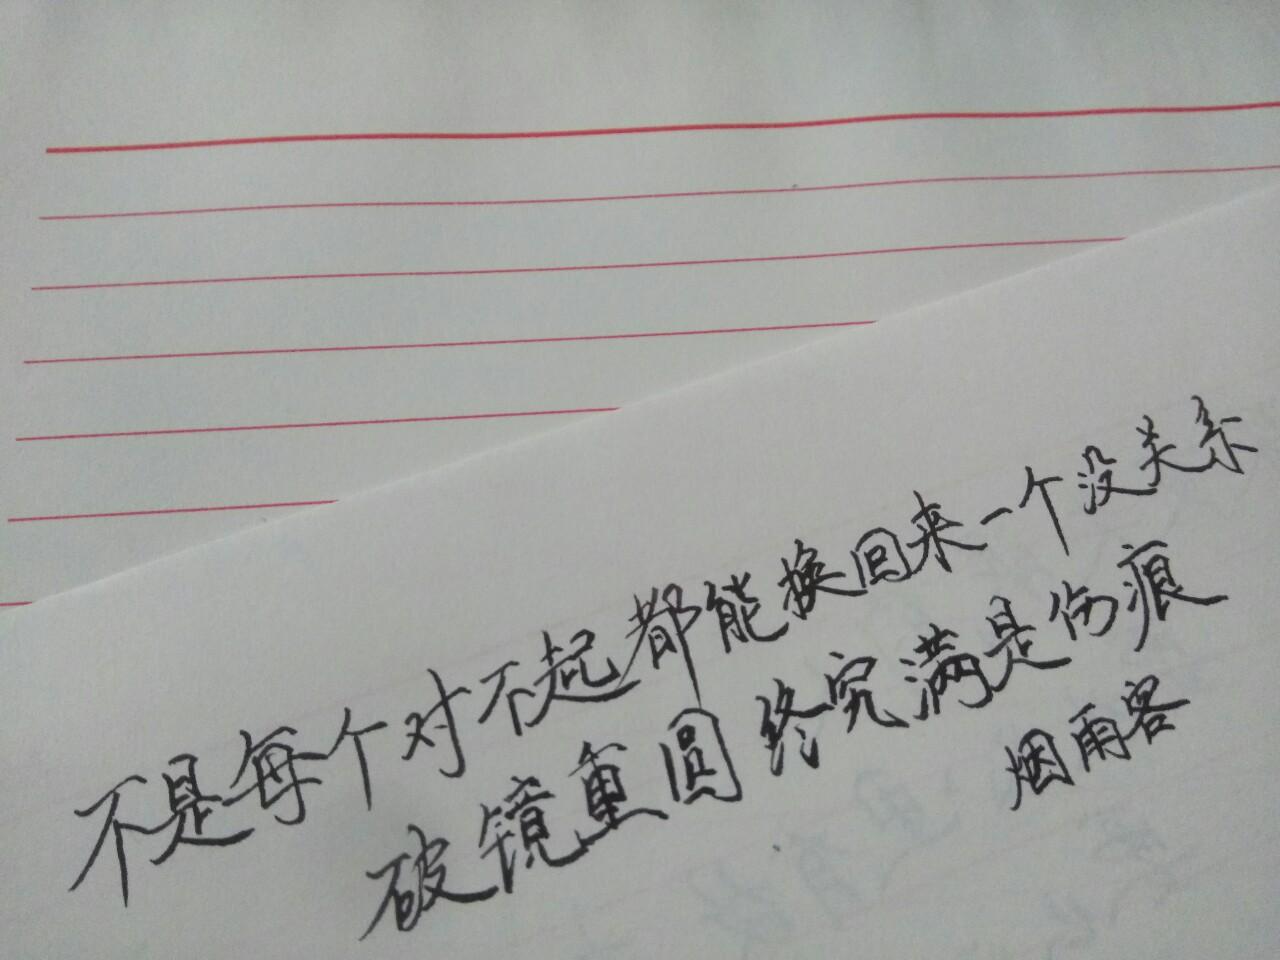 不是每个对不起都能换回来一个没关系
破镜重圆终究满是伤痕
烟雨客